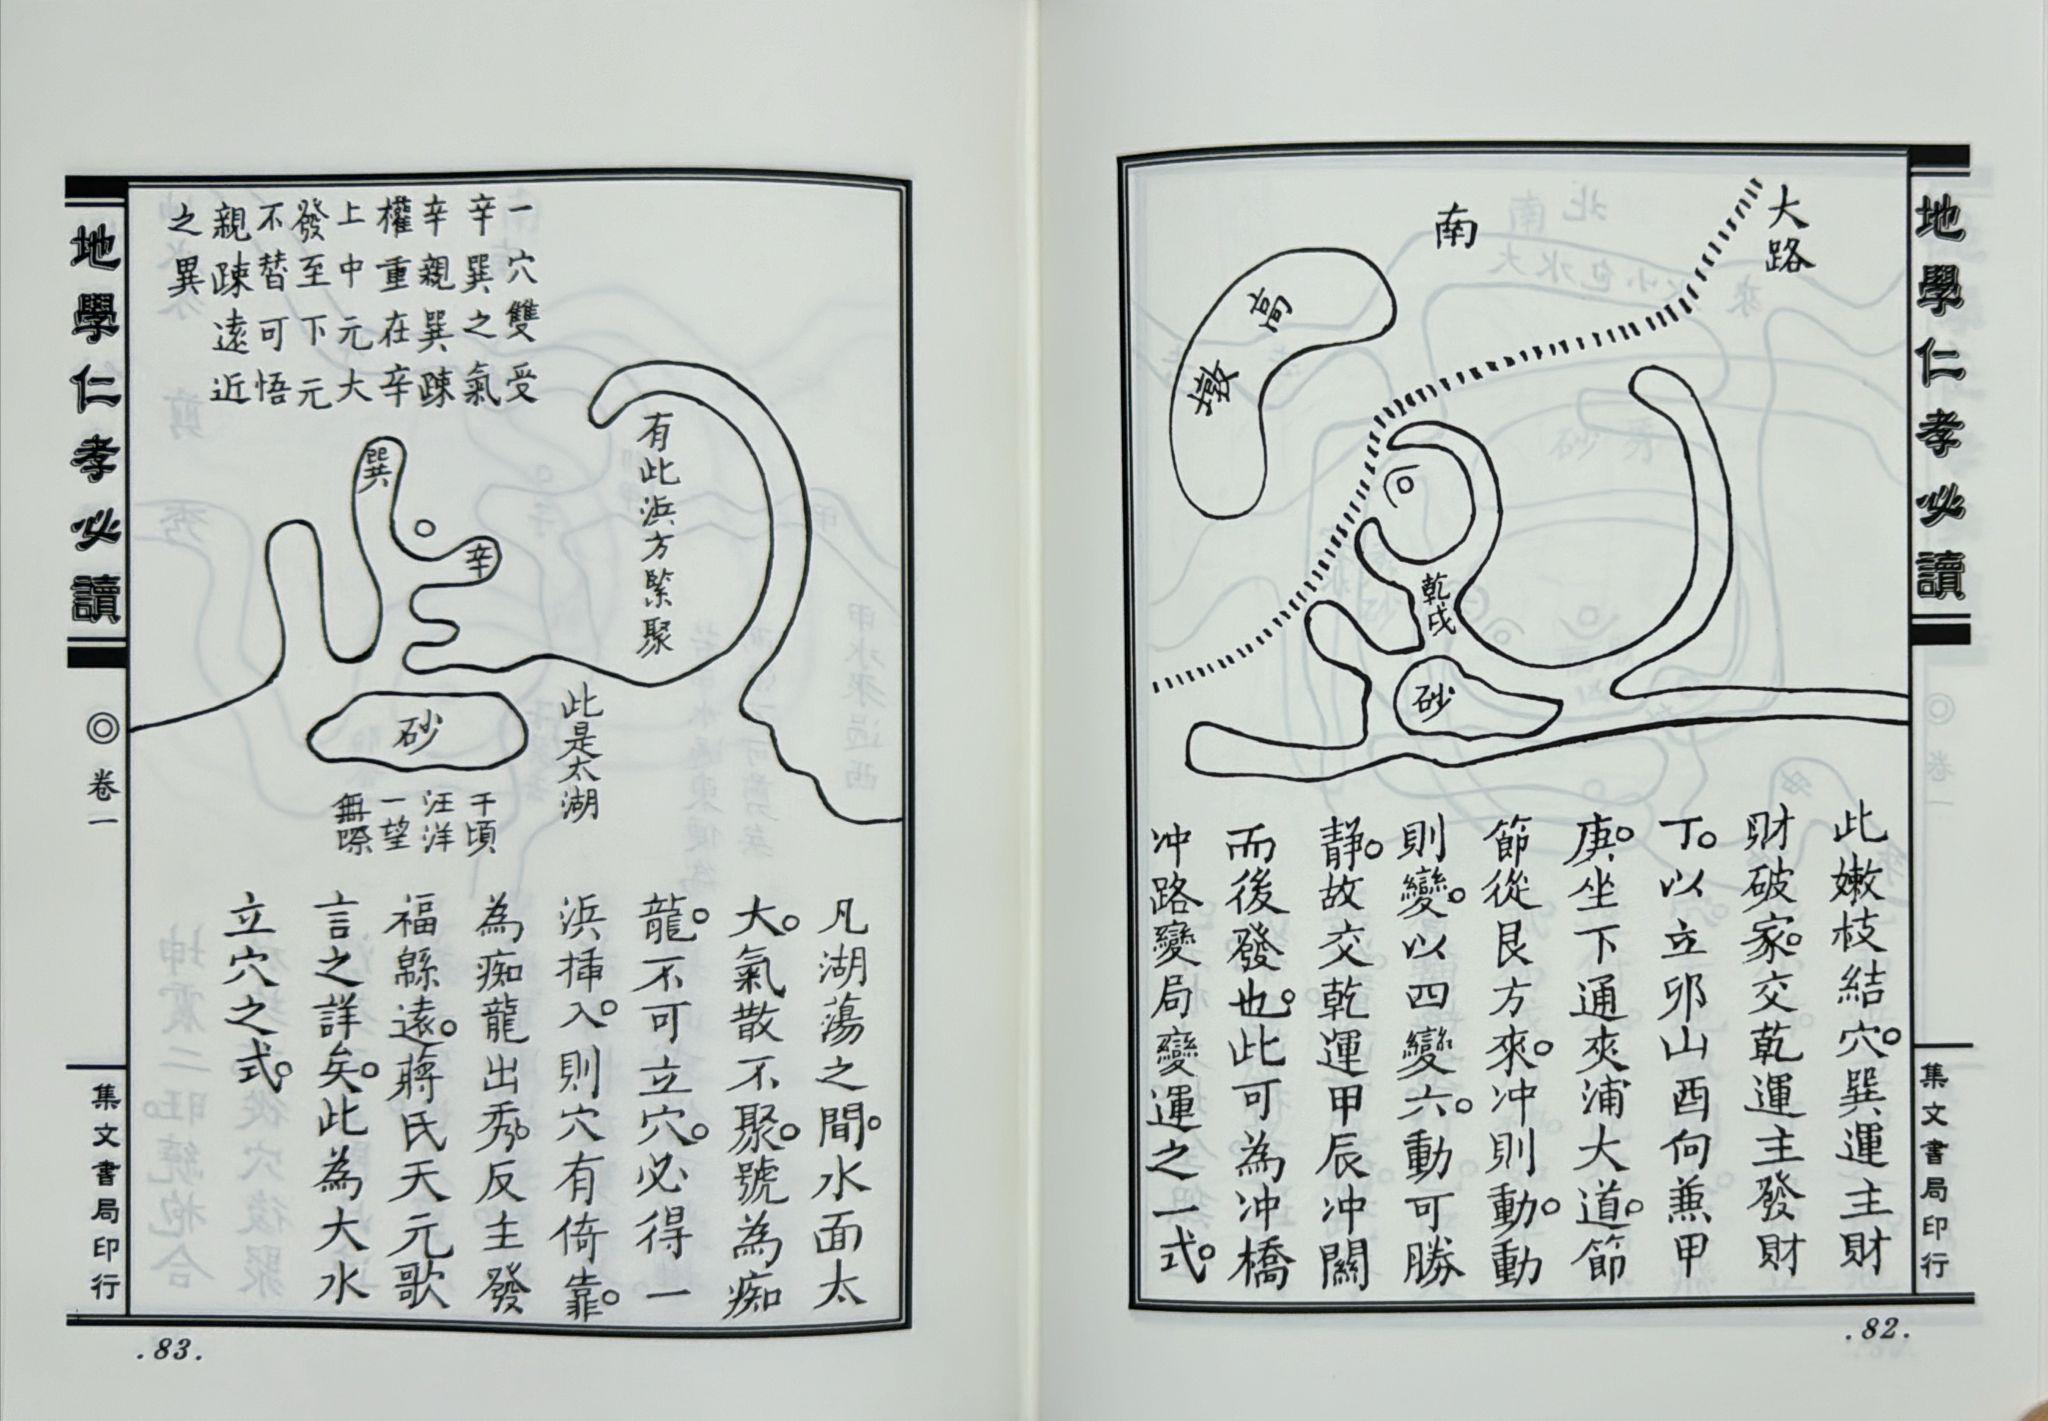 地學仁孝必讀
◎卷一
集文書局印行
大路
南
高墩
乾戌
砂
此嫩枝結穴。巽運主財
財破家。交乾運主發財
丁。以立卯山酉向兼甲
庚。坐下通夾浦大道。節
節從艮方來。冲則動。動
則變。以四變六。動可勝
靜。故交乾運甲辰冲闢
而後發也。此可為冲橋
冲路變局變運之一式。
.82.
一穴雙受
辛巽之氣
辛親巽疎
權重在辛
上中元大
發至下元
不替可悟
親疎遠近
之異
有此浜方緊聚
巽
辛
砂
此是太湖
千頃
汪洋
一望
無際
凡湖蕩之間。水面太
大。氣散不聚。號為痴
龍。不可立穴。必得一
浜揷入。則穴有倚靠。
為痴龍出秀。反主發
福緜遠。蔣氏天元歌
言之詳矣。此為大水
立穴之式。
地學仁孝必讀
◎卷一
集文書局印行
.83.